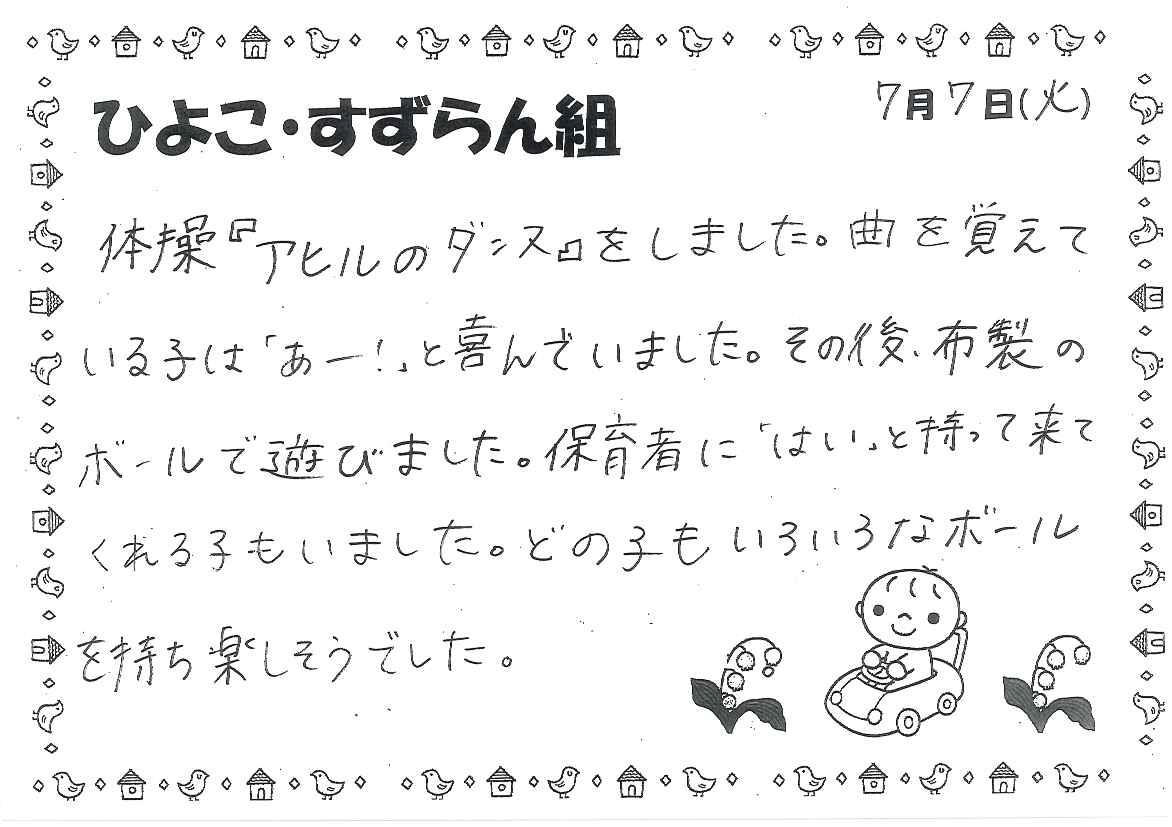 ひよこ・すずらん組
7月7日(火)
体操『アヒルのダンス』をしました。曲を覚えて
いる子は「あー!」と喜んでいました。その後、布製の
ボールで遊びました。保育者に「はい」と持って来て
くれる子もいました。どの子もいろいろなボール
を持ち楽しそうでした。